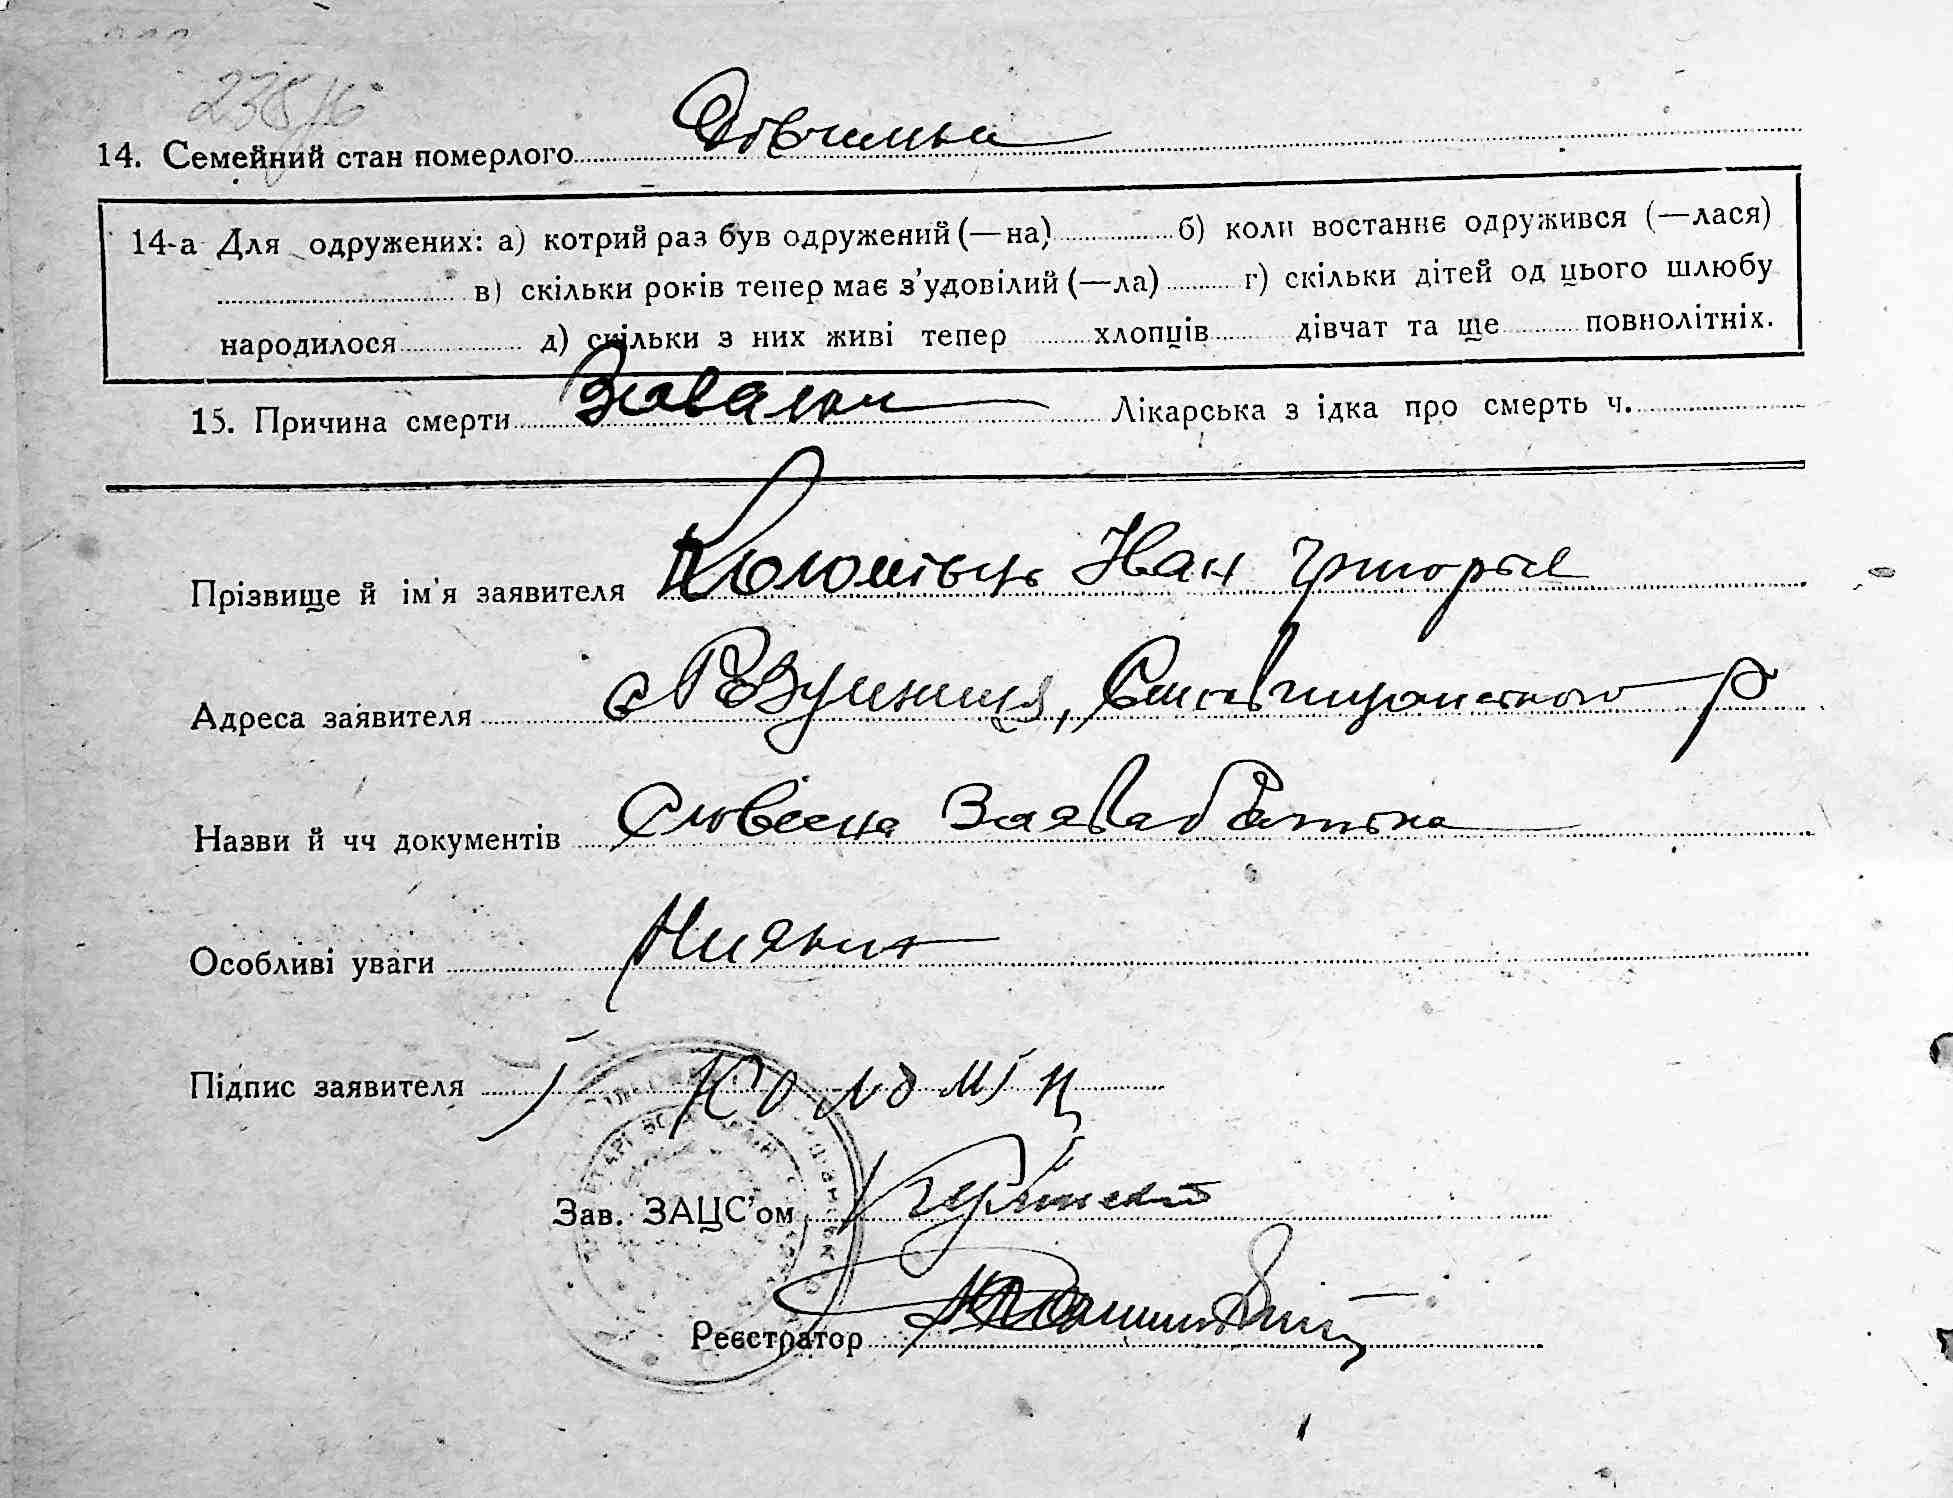 238/6
14. Семейний стан померлого Дівчинка
14-а Для одружених: а) котрий раз був одружений (—на) б) коли востаннє одружився (—лася)
в) скільки років тепер має з'удовілий (—ла) г) скільки дітей од цього шлюбу
народилося д) скільки з них живі тепер хлопців дівчат та ще повнолітніх.
15. Причина смерти Лікарська з ідка про смерть ч.
Прізвище й ім'я заявителя Коломієць Иван
Адреса заявителя с
Назви й чч документів Словесна Заява Батька
Особливі уваги Нияких
Підпис заявителя І Коломіц
Зав. ЗАЦС'ом
Реєстратор